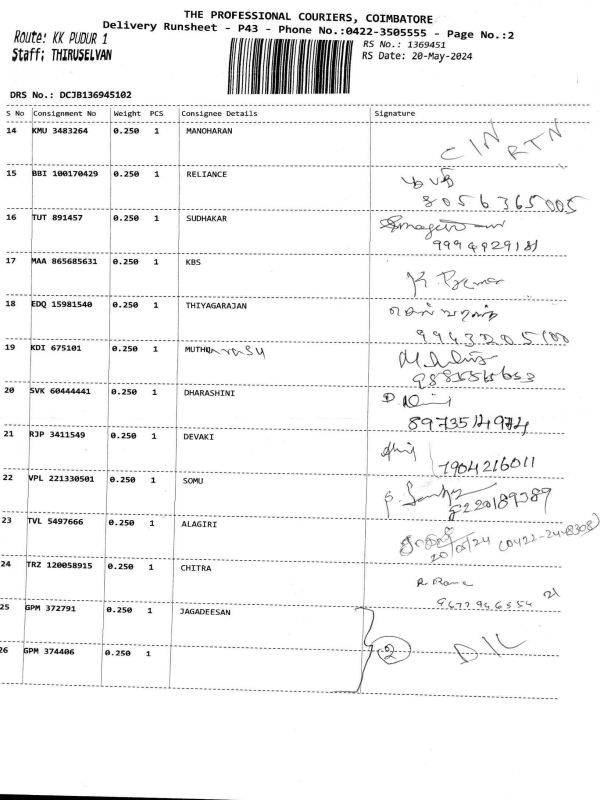 THE PROFESSIONAL COURIERS, COIMBATORE
Delivery Runsheet - P43 - Phone No.:0422-3505555 - Page No.:2
Route: KK PUDUR 1
RS No.: 1369451
Staff: THIRUSELVAN
RS Date: 20-May-2024
DRS No.: DCJB136945102
S No Consignment No Weight PCS Consignee Details Signature
14 KMU 3483264 0.250 1 MANOHARAN CIN RTN
15 BBI 100170429 0.250 1 RELIANCE
8056365005
16 TUT 891457 0.250 1 SUDHAKAR
17 MAA 865685631 0.250 1 KBS
18 EDQ 15981540 0.250 1 THIYAGARAJAN
19 KDI 675101 0.250 1 MUTHUarasu
20 SVK 60444441 0.250 1 DHARASHINI
21 RJP 3411549 0.250 1 DEVAKI
7904216011
22 VPL 221330501 0.250 1 SOMU
23 TVL 5497666 0.250 1 ALAGIRI
20/05/24
24 TRZ 120058915 0.250 1 CHITRA
25 GPM 372791 0.250 1 JAGADEESAN
26 GPM 374406 0.250 1 2 DIL